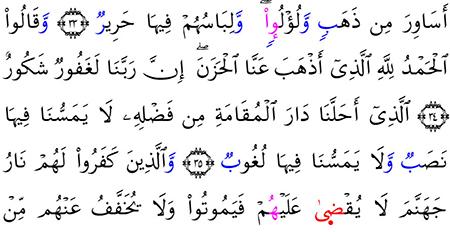 أَسَاوِرَ مِن ذَهَبٍ وَّلُؤْلُوٕاْ ۖ وَّلِبَاسُهُمْ فِيهَا حَرِيرٌ ﴿٣٣﴾ وَّقَالُواْ
الْحَمْدُ لِلَّهِ الَّذِىٓ أَذْهَبَ عَنَّا الْحَزَنَ ۖ إِنَّ رَبَّنَا لَغَفُورٌ شَكُورٌ
﴿٣٤﴾ الَّذِىٓ أَحَلَّنَا دَارَ الْمُقَامَةِ مِن فَضْلِهِۦ لَا يَمَسُّنَا فِيهَا
نَصَبٌ وَّلَا يَمَسُّنَا فِيهَا لُغُوبٌ ﴿٣٥﴾ وَّالَّذِينَ كَفَرُواْ لَهُمْ نَارُ
جَهَنَّمَ لَا يُقْضِىٰ عَلَيْهُمْ فَيَمُوتُواْ وَلَا يُخَفَّفُ عَنْهُم مِّنْ